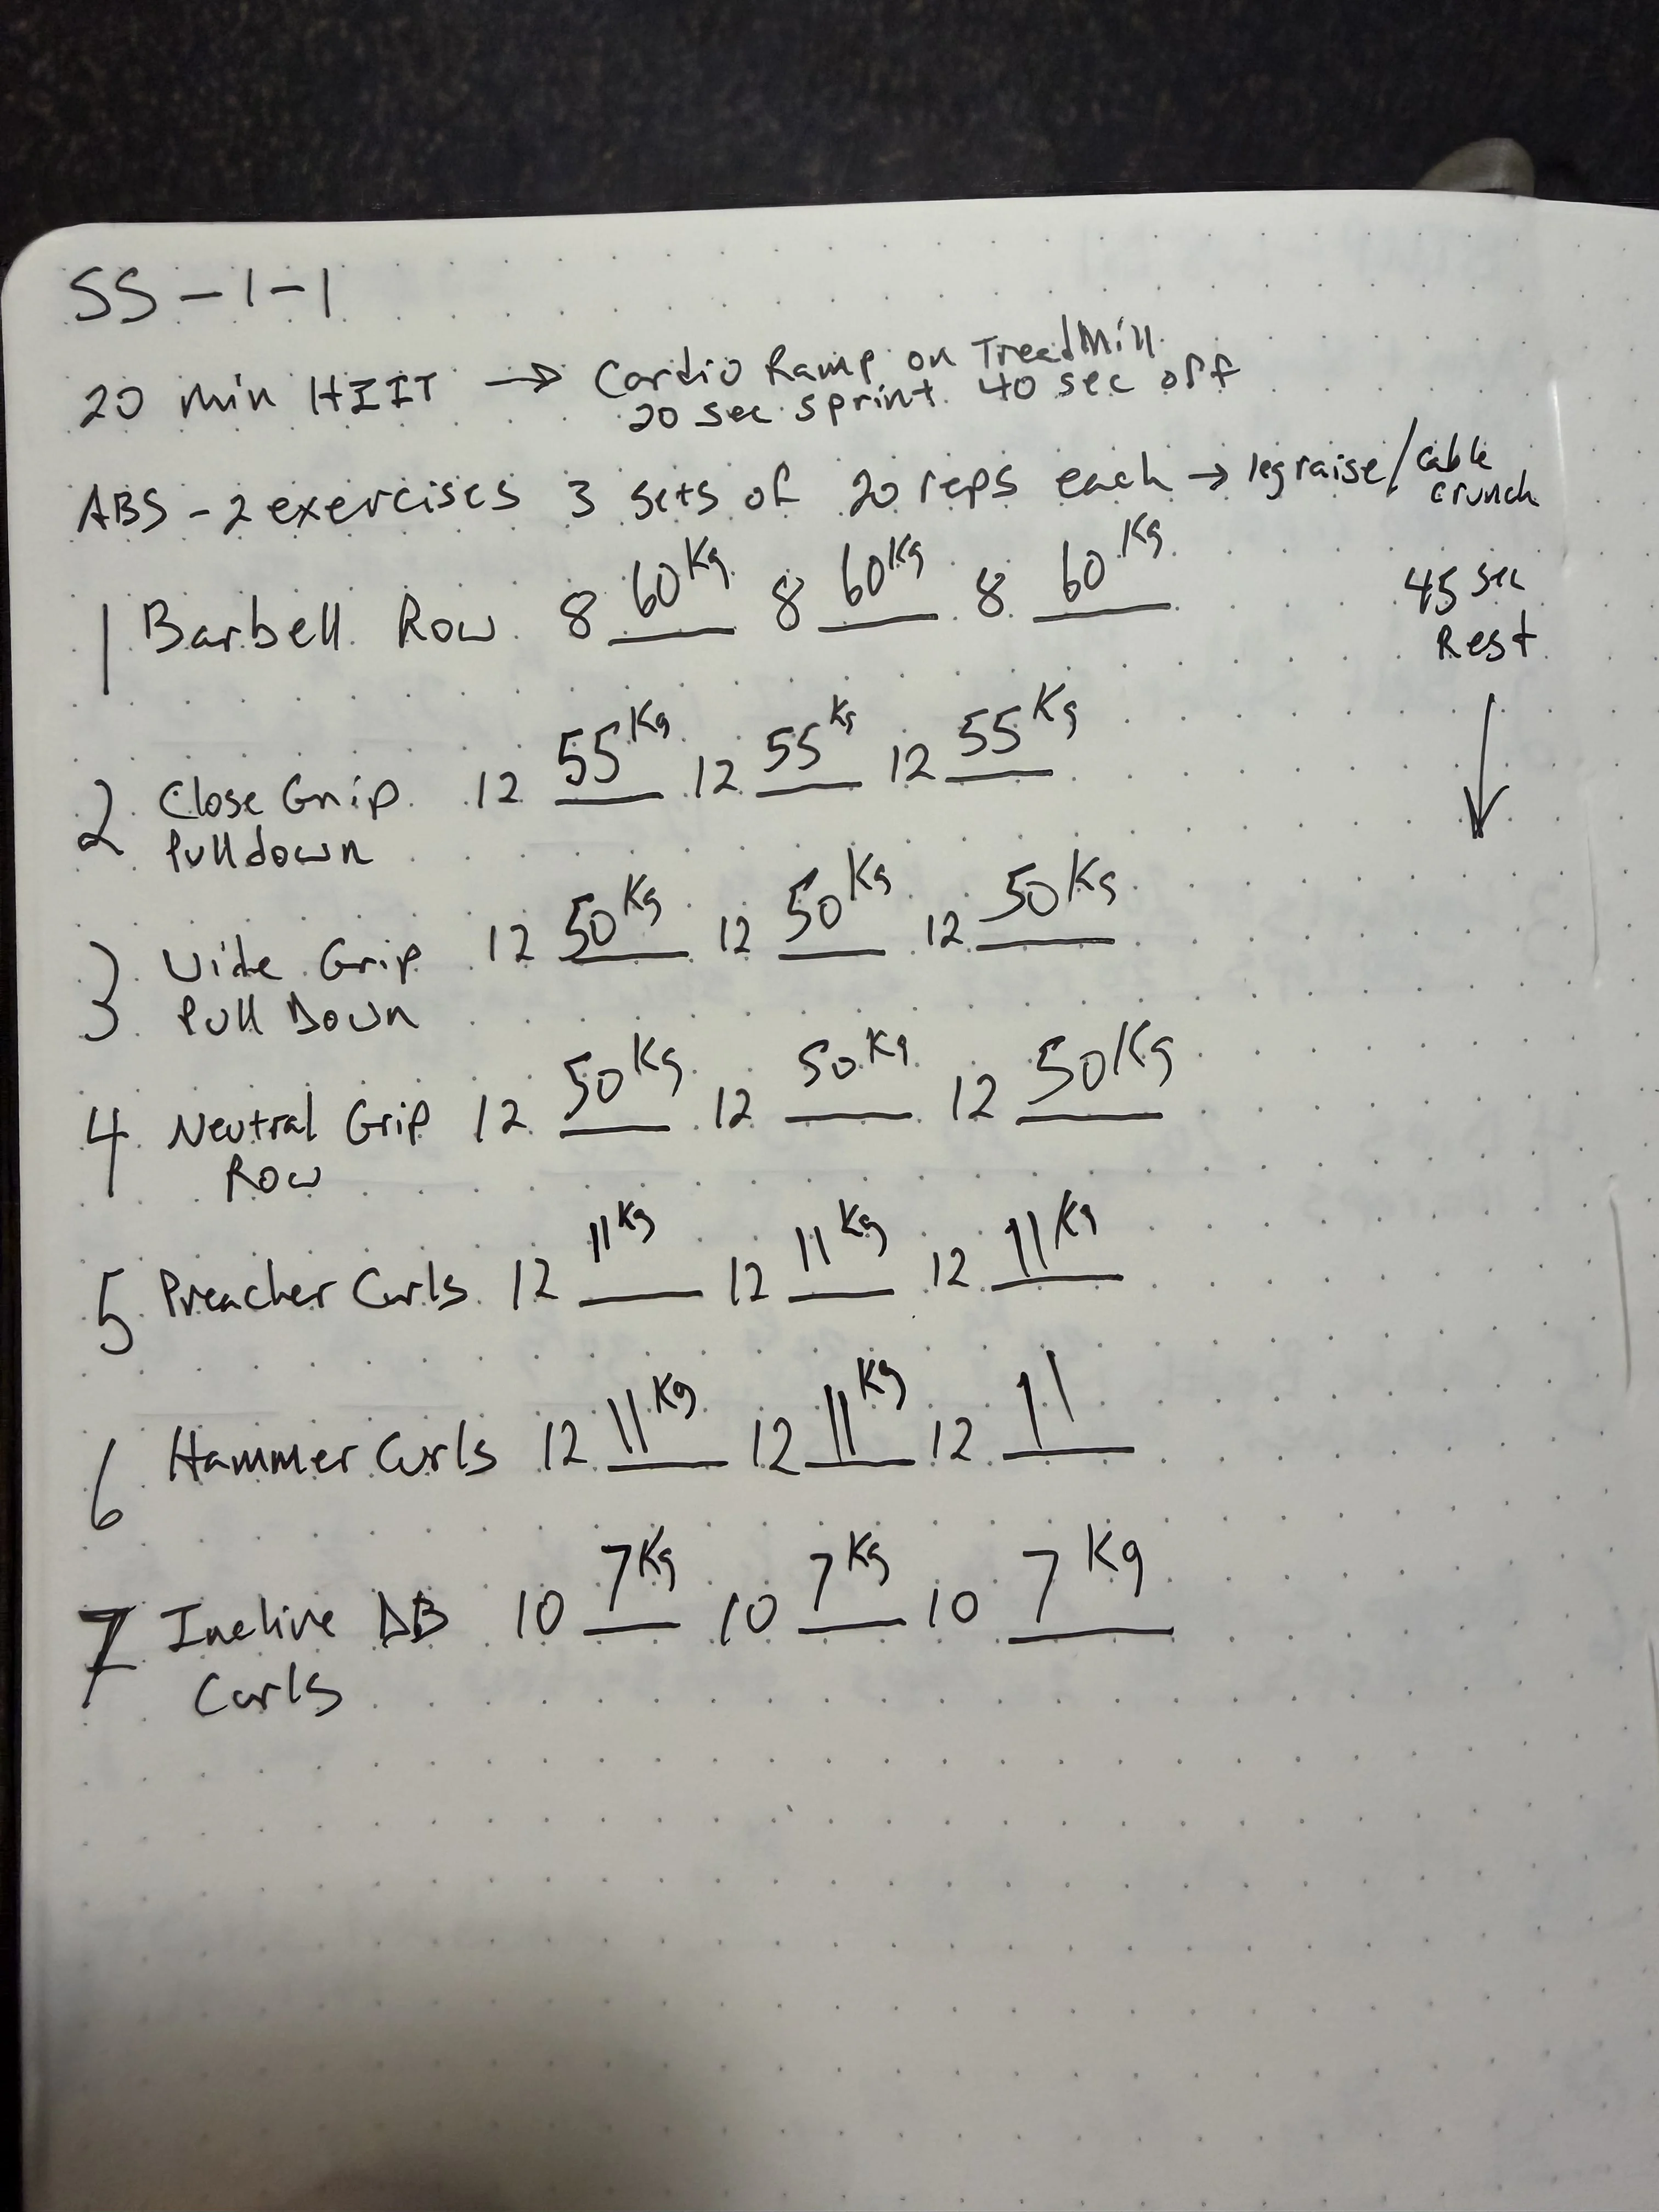 SS-1-1
20 min HIIT → Cardio Ramp on TreadMill
20 sec sprint. 40 sec off
ABS - 2 exercises 3 sets of 20 reps each → leg raise/cable crunch
1 Barbell Row 8 60Kg 8 60Kg 8 60Kg
45 sec
Rest
↓
2 Close Grip 12 55Kg 12 55Kg 12 55Kg
Pulldown
3 Wide Grip 12 50Kg 12 50Kg 12 50Kg
Pull Down
4 Neutral Grip 12 50Kg 12 50Kg 12 50Kg
Row
5 Preacher Curls 12 11Kg 12 11Kg 12 11Kg
6 Hammer Curls 12 11Kg 12 11Kg 12 11
7 Incline DB 10 7Kg 10 7Kg 10 7Kg
Curls